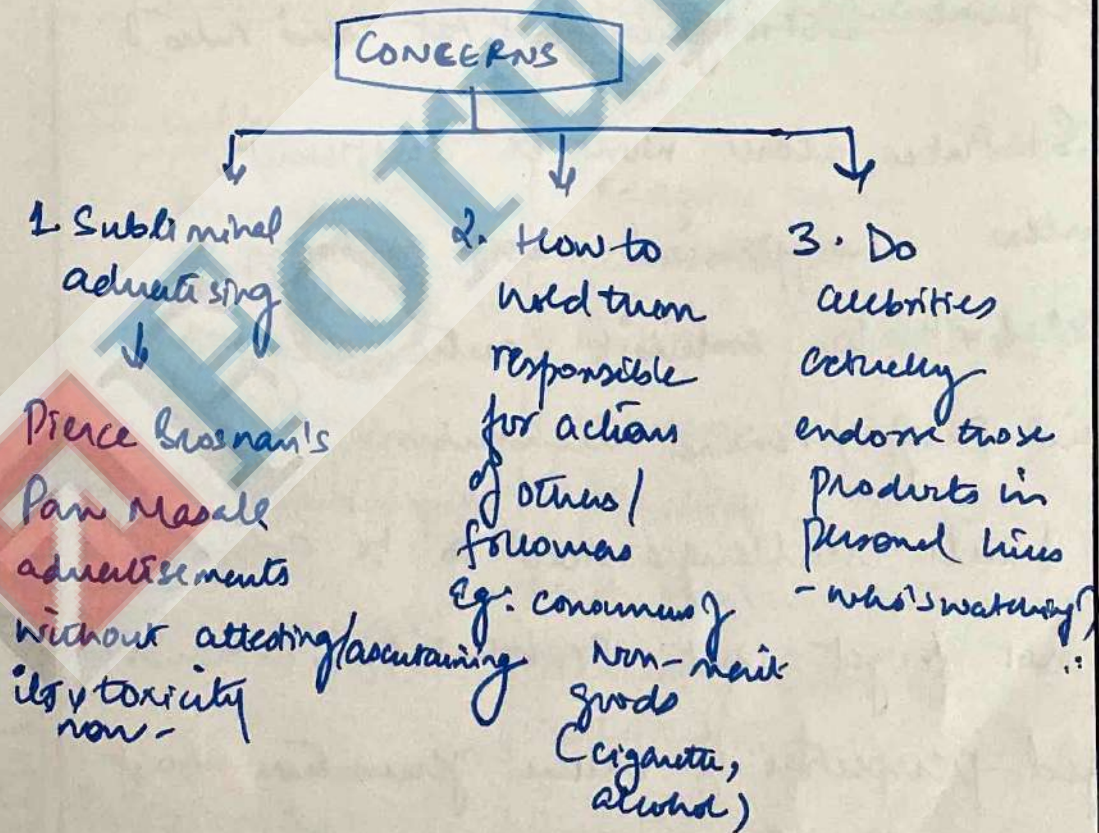 CONCERNS
1. Subliminal
advertising
Pierce Brosnan's
Pan Masala
advertisements
without attesting/ascertaining
its non-toxicity
2. How to
hold them
responsible
for actions
of others/
followers
Eg: consumers of
non-merit
goods
(cigarette,
alcohol)
3. Do
celebrities
actually
endorse those
products in
personal lives
- who's watching?
Forum